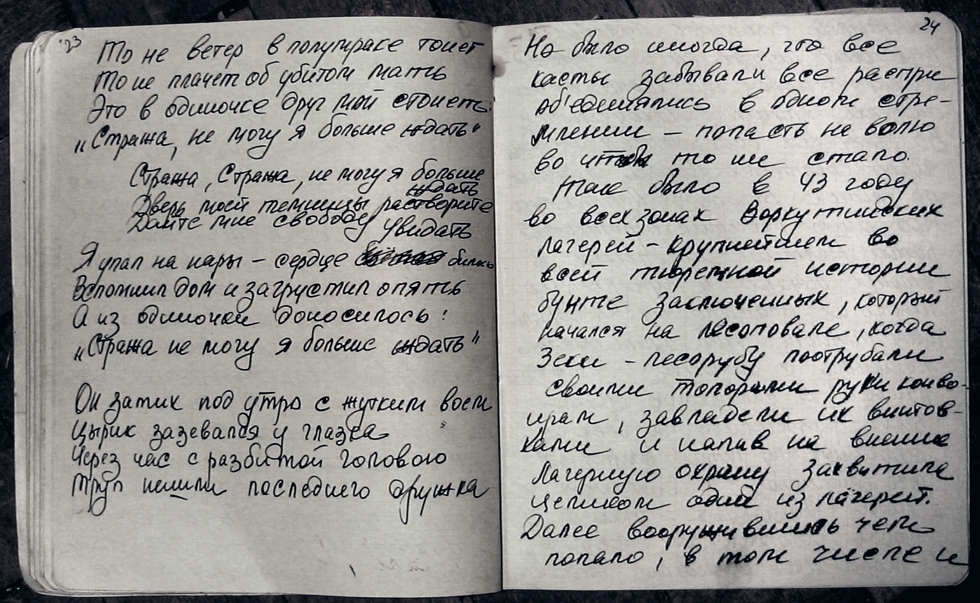 23
То не ветер в полумраке тонет
То не плачет об убитом мать
Это в одиночке друг мой стонет
"Стража, не могу я больше ждать"
Стража, Стража, не могу я больше
ждать
Дверь моей темницы растворите
Дайте мне свободу увидать
Я упал на нары - сердце билось
Вспомнил дом и загрустил опять
А из одиночки доносилось:
"Стража не могу я больше ждать"
Он затих под утро с жутким воем
Цырик зазевался у глазка
Через час с разбитой головою
Труп нешли последнего дружка
24
Но было иногда, что все
касты забывали все распри
об'единялись в одном стре-
млении - попасть на волю
во чтобы то ни стало.
Так было в 43 году
во всех зонах Воркутинских
лагерей - крупнейшем во
всей тюремной истории
бунте заключенных, который
начался на лесоповале, когда
Зеки - лесорубы поотрубали
своими топорами руки конво-
ирам, завладели их винтов-
ками и напав на внешнюю
лагерную охрану захватила
целиком один из лагерей.
Далее вооружившись чем
попало, в том числе и